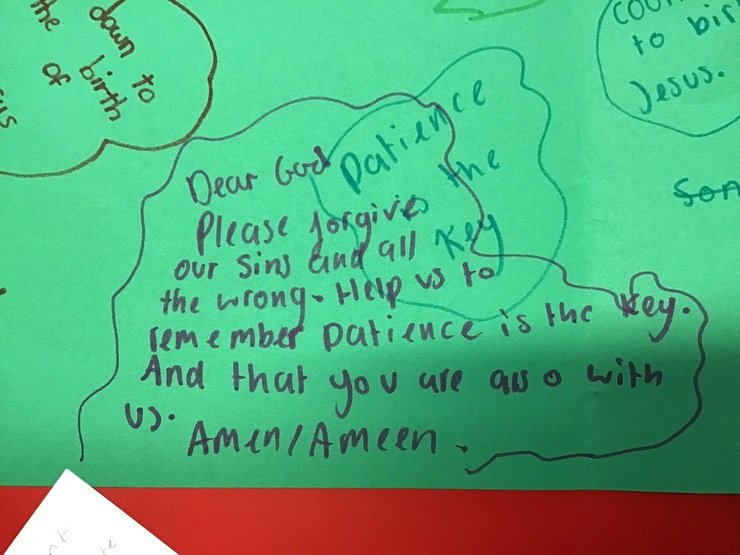 down to
the birth
of
Patience
the
key
to
Jesus.
Dear God
Please forgive
our sins and all
the wrong. Help us to
remember patience is the key.
And that you are also with
us.
Amen/Ameen.